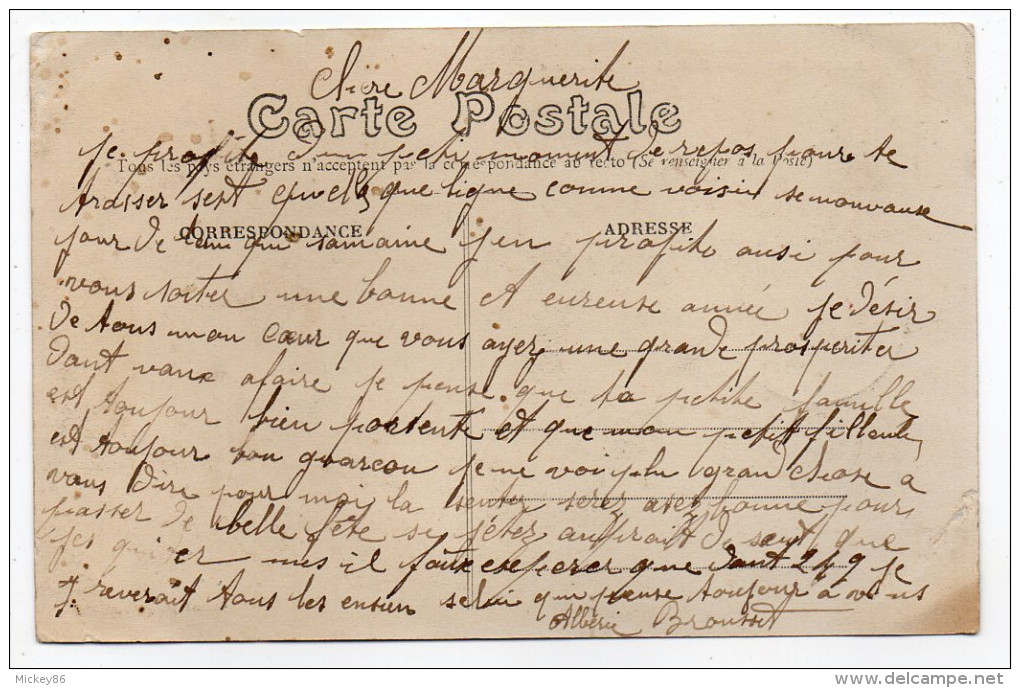 Chère Marguerite
Carte Postale
je profite d'un petit moment de repos pour te
Tous les pays étrangers n'acceptent pas la correspondance au recto (Se renseigner à la Poste)
traiser sest quelque ligne comme voisin se nouvause
CORRESPONDANCE
ADRESSE
jour de semaine j'en profite ausi pour
vous soiter une bonne et eureuse année je désir
de tous mon cœur que vous ayez une grande prosperiter
dant vaux afaire je pense que ta petite famille
est toujour bien portente et que mon petit filleule
est toujour bon guarcon je ne voi plu grand chose a
vous dire pour moi la senter serez asez bonne pour
passer de belle fête se que
mes il faut esperer que dant 249 je
reverait tous les ensien selui que pense toujour à vous
Albérie Brousset
Mickey86
delcampe.net